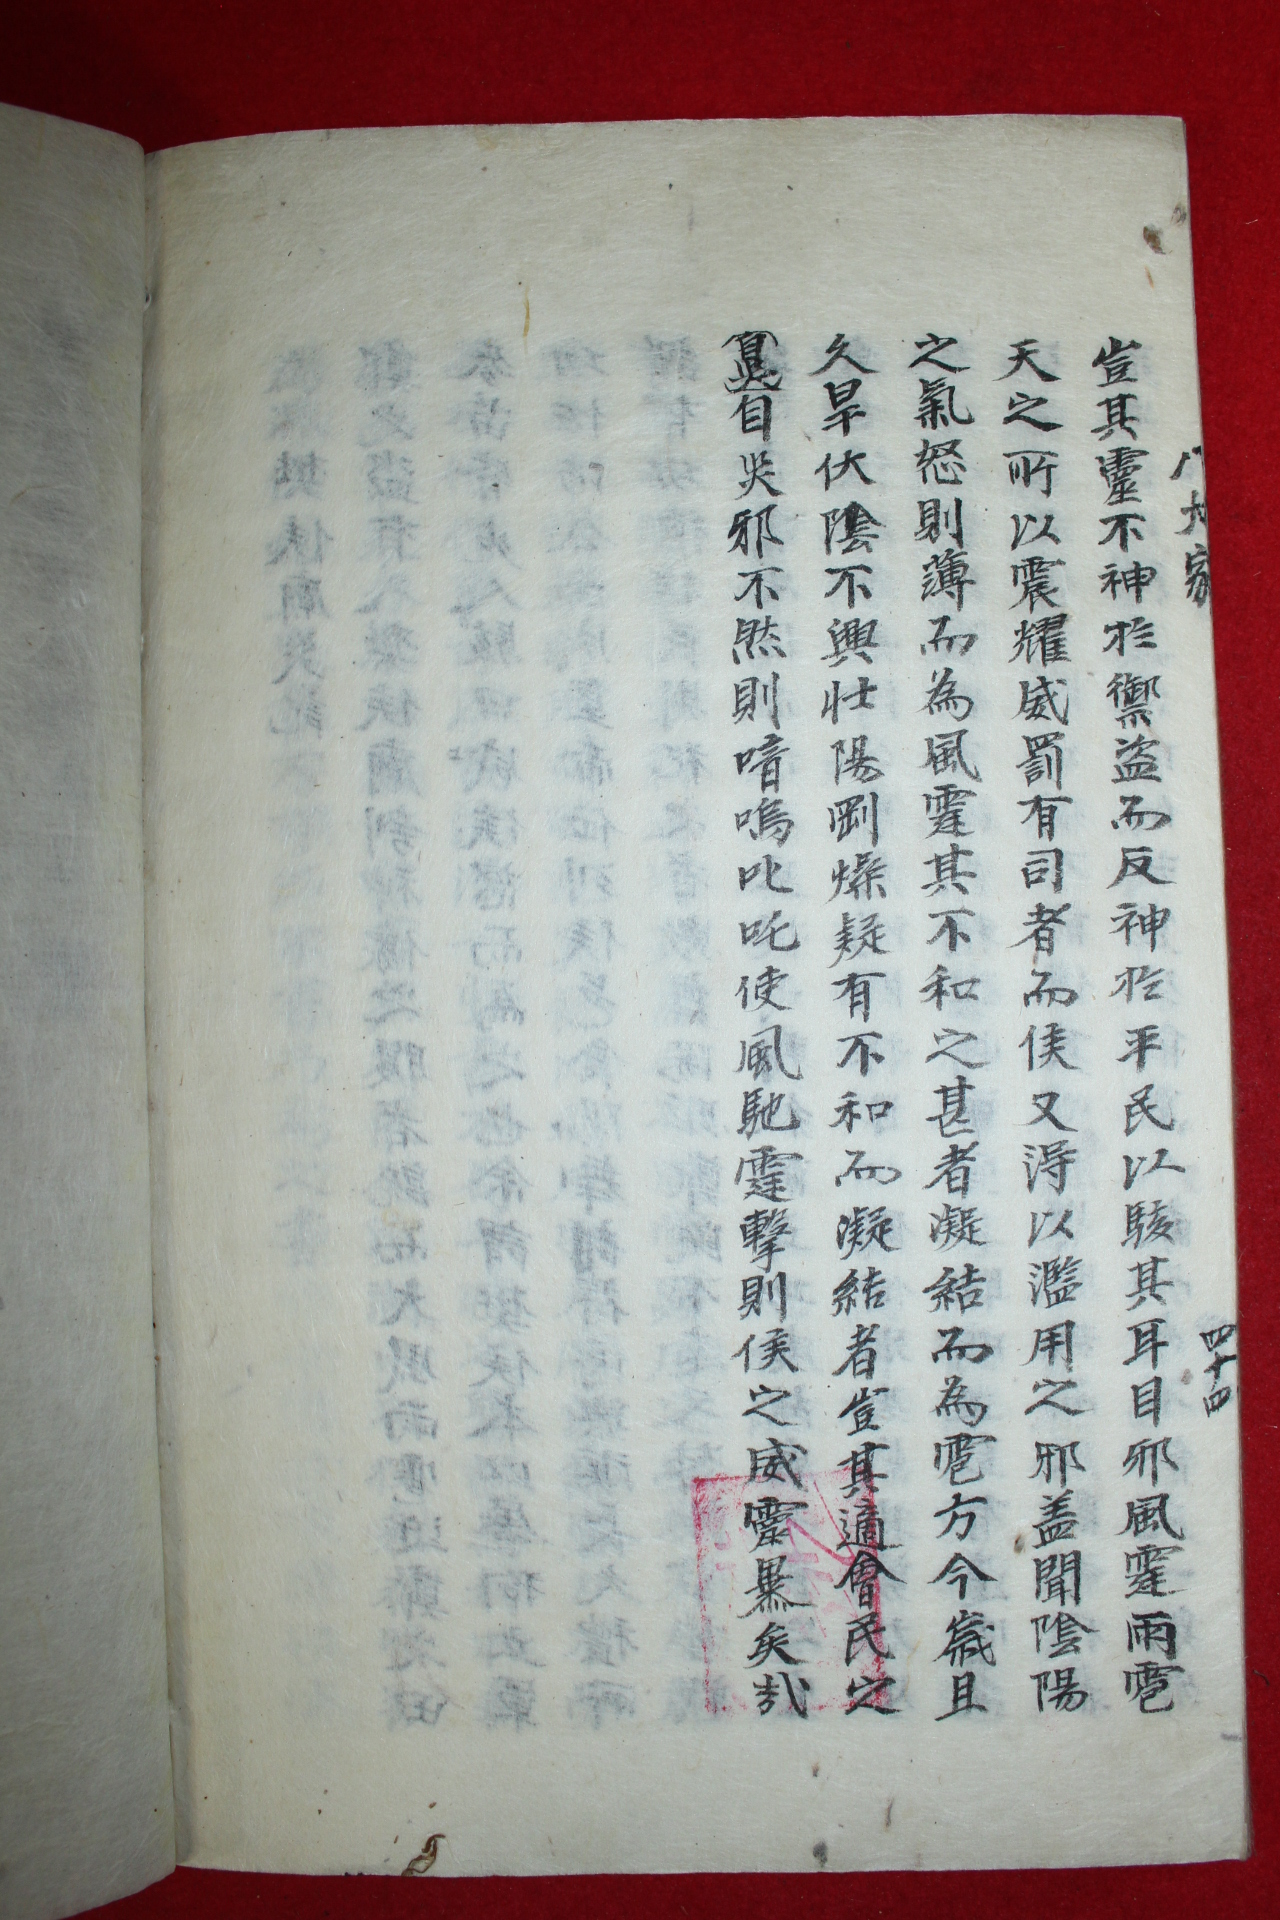 八大家
四十四
豈其靈不神於禦盜而反神於平民以駿其耳目邪風霆雨雹
天之所以震耀威罰有司者而侯又得以濫用之邪盖聞陰陽
之氣怒則薄而為風霆其不和之甚者凝結而為雹方今歲且
久旱伏陰不興壯陽剛燥疑有不和而凝結者豈其適會民之
自災邪不然則喑嗚叱吒使風馳霆擊則侯之威靈暴矣哉